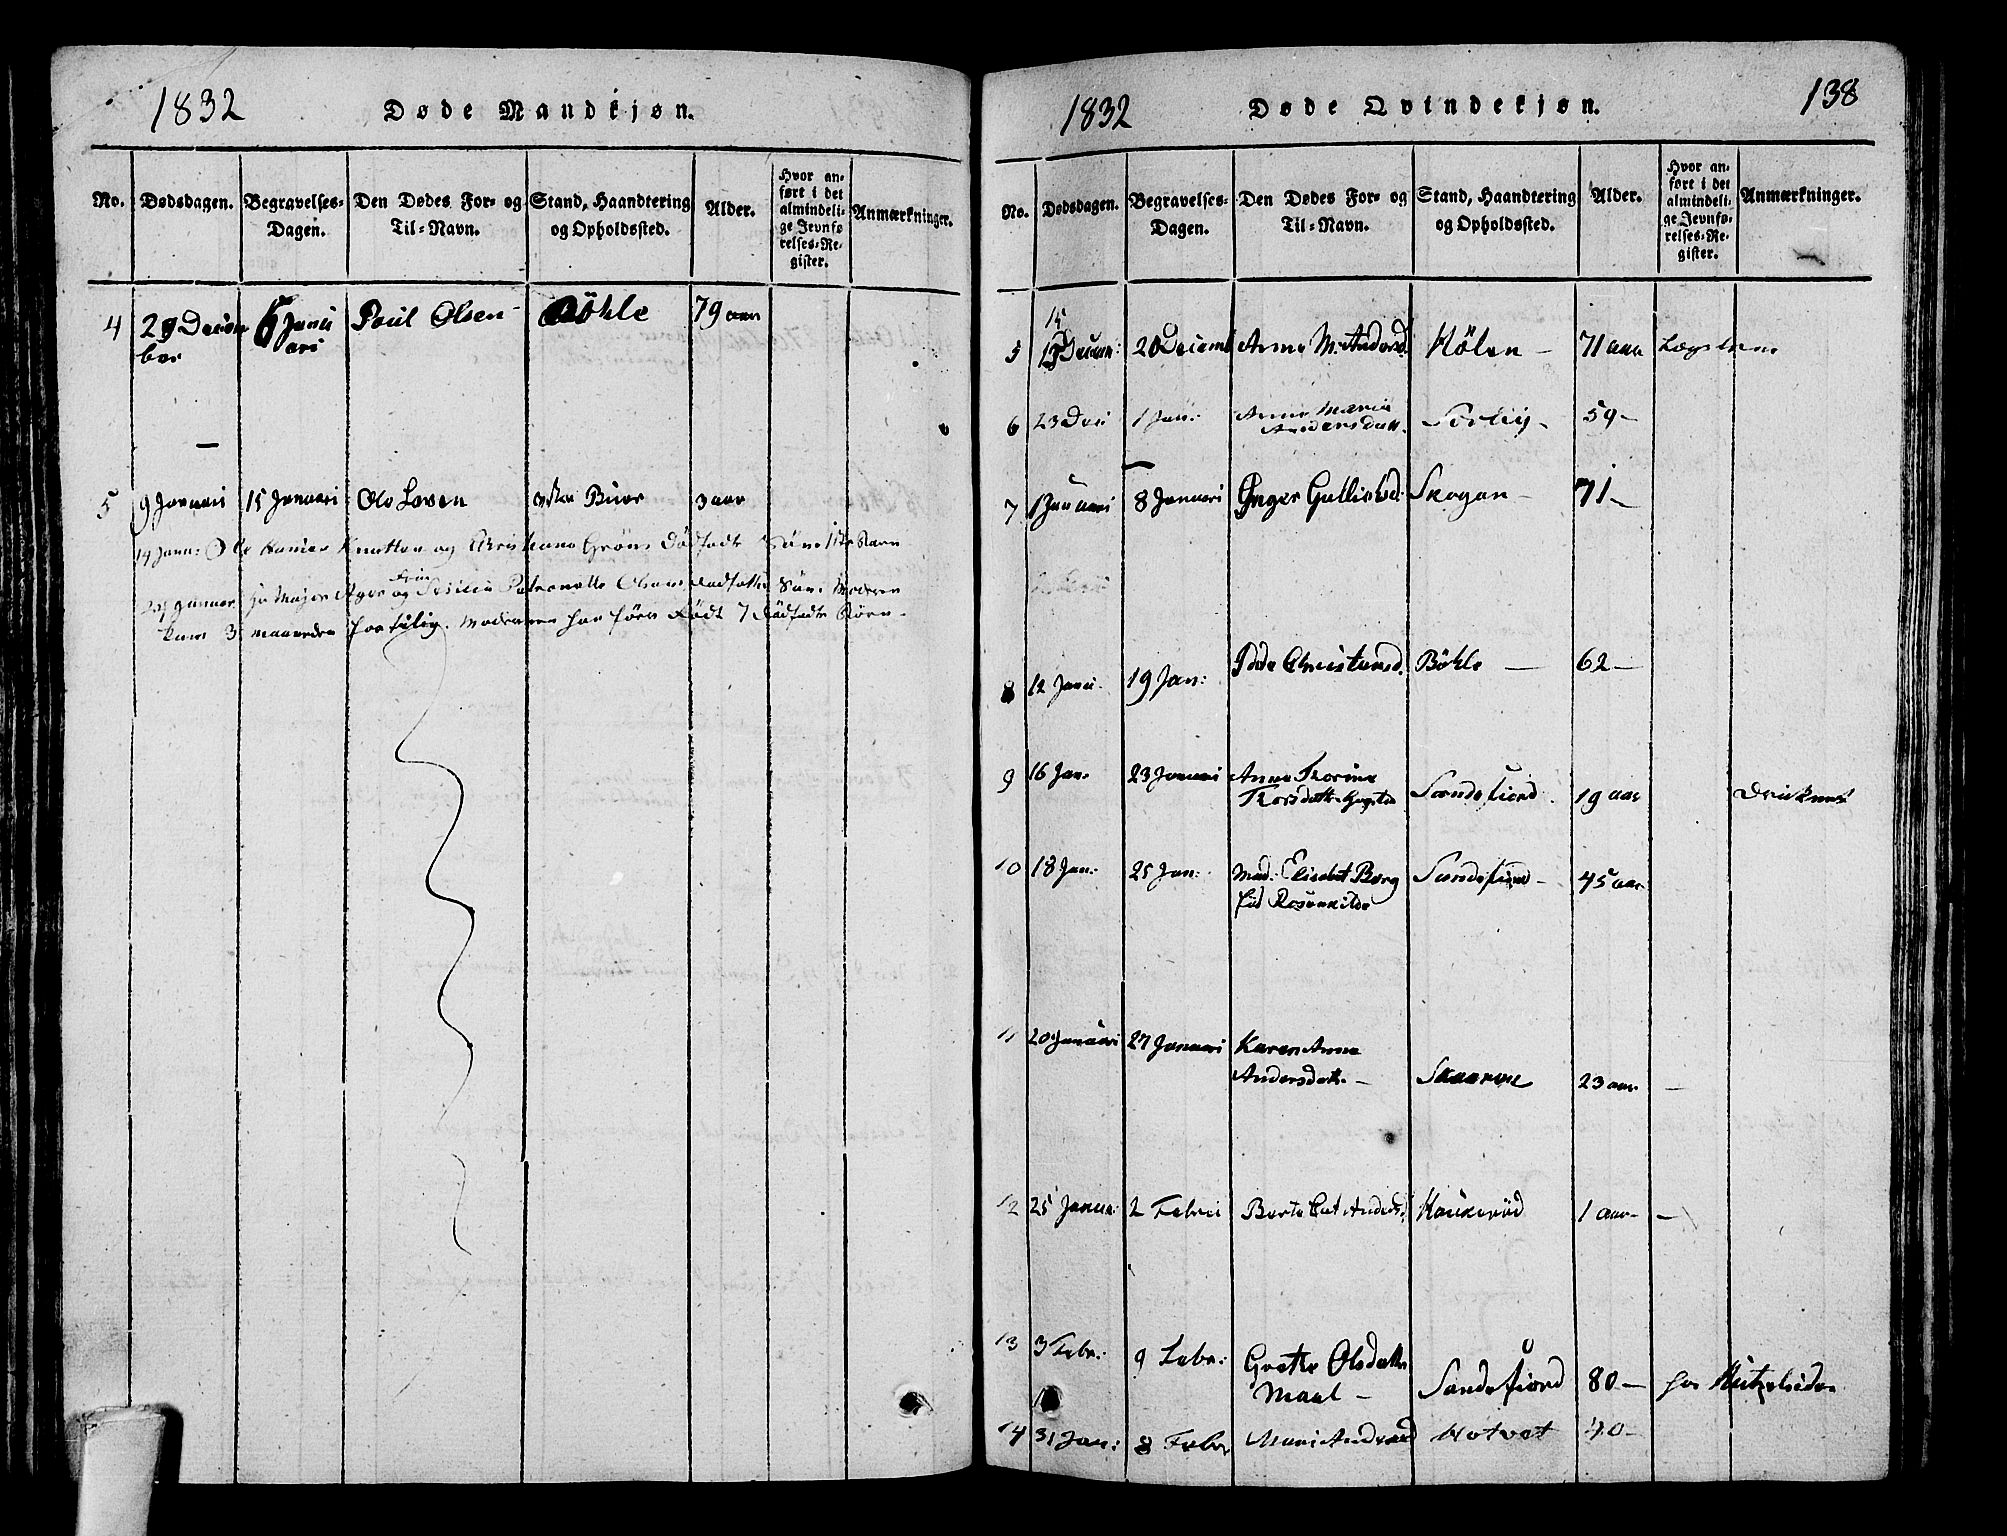 1832 Døde Mandkjøn.
No. Dødsdagen. Begravelses-Dagen. Den Dødes For- og Til-Navn. Stand, Haandtering og Opholdssted. Alder. Hvor anført i det almindelige Jevnførelses-Register. Anmærkninger.
4 29 Decem 6 Janu Poul Olsen Böhle 79 aar
ber ari
5 9 Januari 15 Januari Ole Larsen Buer 3 aar
14 Janu: Ole Knutsen og Christiane Dödfødt Sön
Frue
Major og Olsen Dödfødt Sön. Moderen
kun 3 maaneder Moderen har före Födt 7 Dödfødte Börn.
1832 Døde Qvindekjøn. 138
No. Dødsdagen. Begravelses-Dagen. Den Dødes For- og Til-Navn. Stand, Haandtering og Opholdssted. Alder. Hvor anført i det almindelige Jevnførelses-Register. Anmærkninger.
15
5 Decem: 20 Decemb Anne M. Andersd. Hölen – 71 aar Lægdslem
6 23 Dec 1 Jan: Anne Maria
Andersdatt. 59 –
7 1 Januari 8 Januari Inger Gulliksd. Skogan – 71 –
8 12 Janu. 19 Jan: Christensd. Böhle – 62 –
9 16 Jan. 23 Januari Anne Thorine
Thorsdatt. Sandefiord. 19 aar
10 18 Jan: 25 Jan: Mad: Elisabet Berg Sandefiord – 45 aar
föd Rosenkilde
11 20 Januari 27 Januari Karen Anne
Andersdatt. – 23 aar –
12 25 Janua: 2 Febru Berte Cat Andersd. Haukeröd 1 aar –
13 3 Febr: 9 Febr: Grethe Olsdatter
Maal – Sandefiord 80 –
14 31 Jan: 8 Febr Mari Andersd Hotvet 40 –